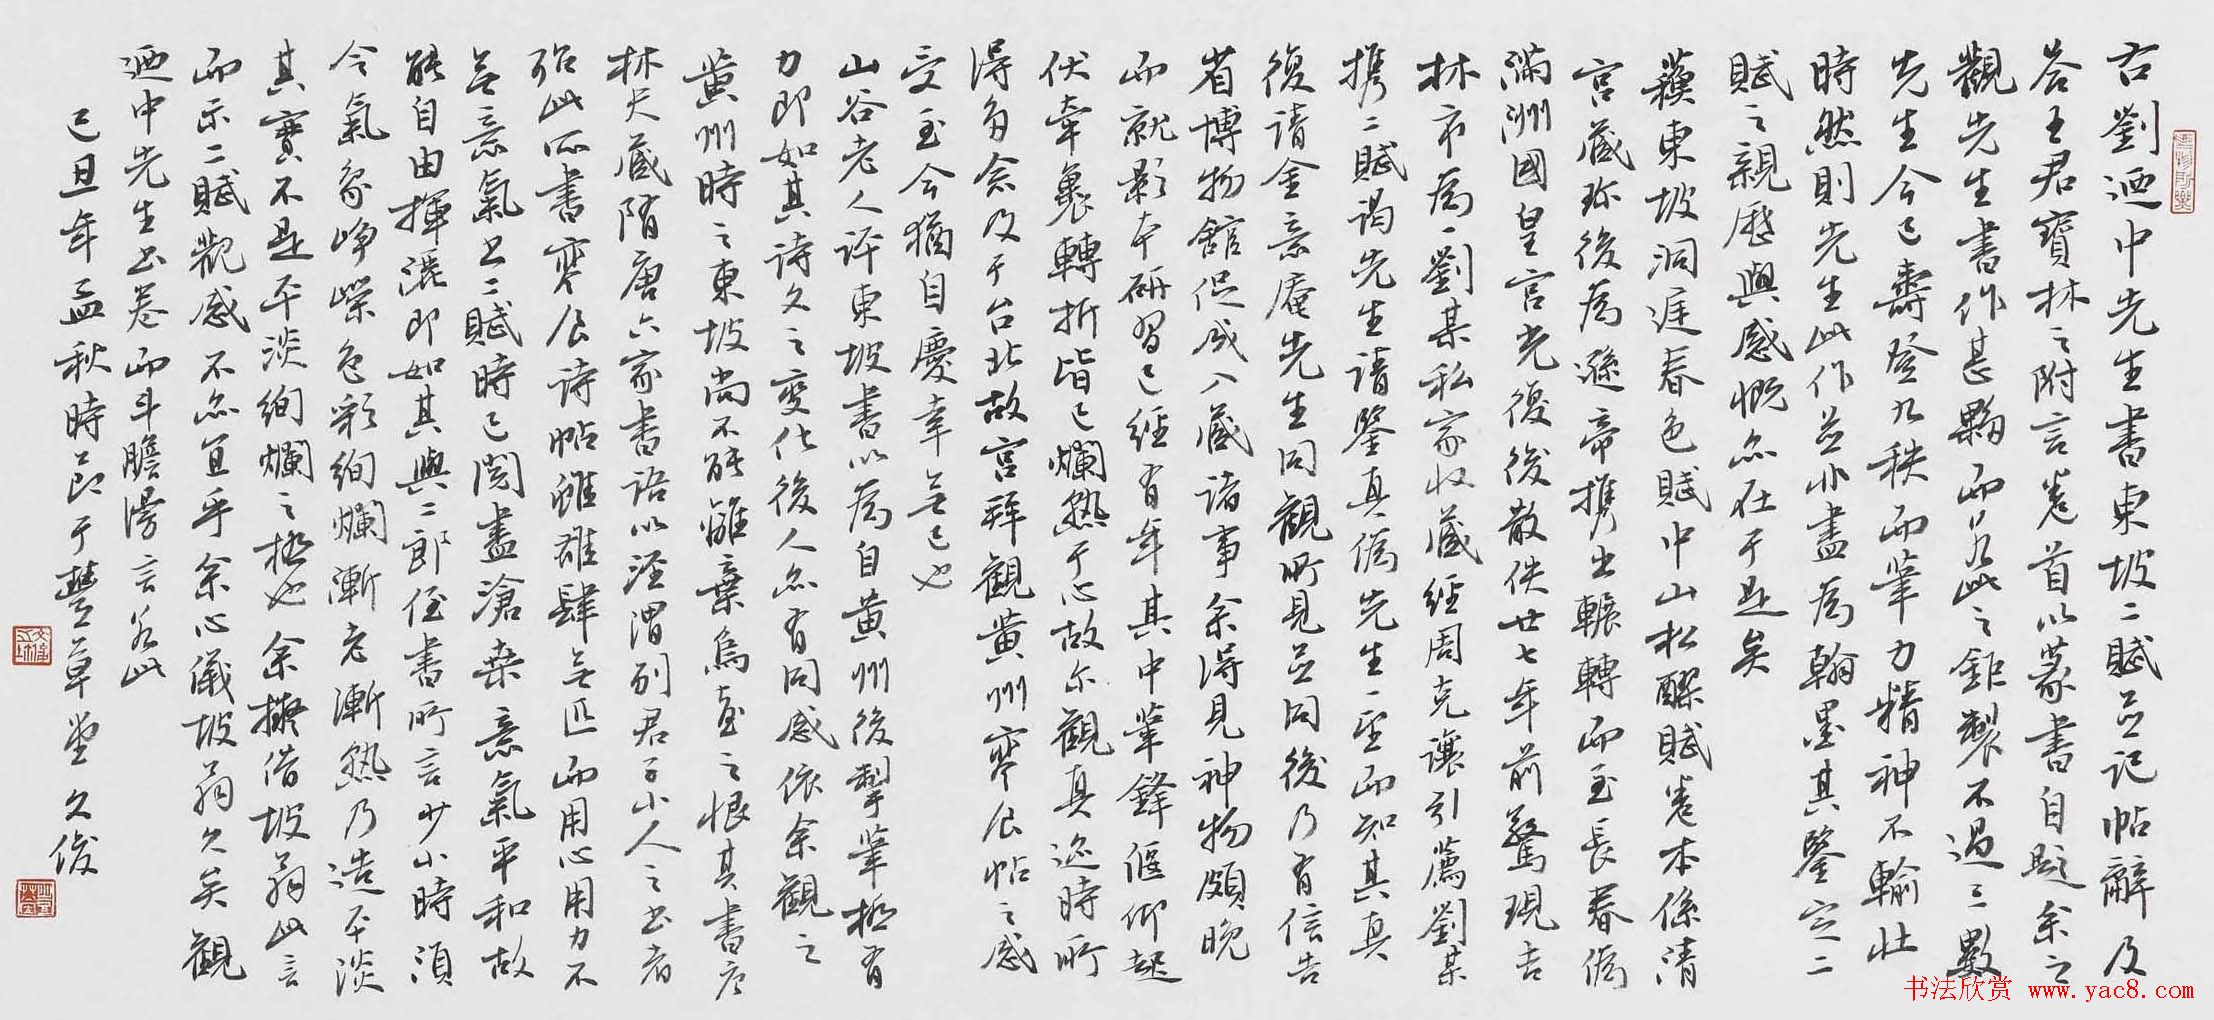 右劉迺中先生書東坡二賦並記帖辭及
答王君寶林之附言卷首以篆書自題余之
觀先生書作甚夥而若此之鉅製不過三數
先生今已壽登九秩而筆力精神不輸壯
時然則先生此作並非盡為翰墨其鑒定二
賦之親歷與感慨亦在于是矣
蘇東坡洞庭春色賦中山松醪賦卷本係清
宮藏珍後為遜帝携出輾轉而至長春偽
滿洲國皇宮光復後散佚廿七年前驚現吉
林市為一劉某私家收藏經周克讓引薦劉某
携二賦謁先生請鑒真偽先生一望而知其真
復請金意庵先生同觀所見並同後乃有信告
省博物館促成入藏諸事余得見神物頗晚
而就影本研習已經有年其中筆鋒偃仰起
伏牽裹轉折皆已爛熟于心故亦觀真迹時所
得多念及于台北故宮拜觀黃州寒食帖之感
受至今猶自慶幸無已也
山谷老人評東坡書以為自黃州後掣筆極有
力即如其詩文之變化後人亦有同感依余觀之
黃州時之東坡尚不能離棄烏臺之恨其書疾
林夫藏隋唐六家書語以涇渭列君子小人之書者
殆此所書寒食詩帖雖雄肆無匹而用心用力不
無意氣書二賦時已閱盡滄桑意氣平和故
能自由揮灑即如其與二郎侄書所言少小時須
令氣象崢嶸色彩絢爛漸老漸熟乃造平淡
其實不是平淡絢爛之極也余擬借坡翁此言
而示二賦觀感不亦宜乎余心儀坡翁久矣觀
迺中先生書卷而斗膽漫言若此
己丑年孟秋時節于豐草堂文俊
书法欣赏 www.yac8.com